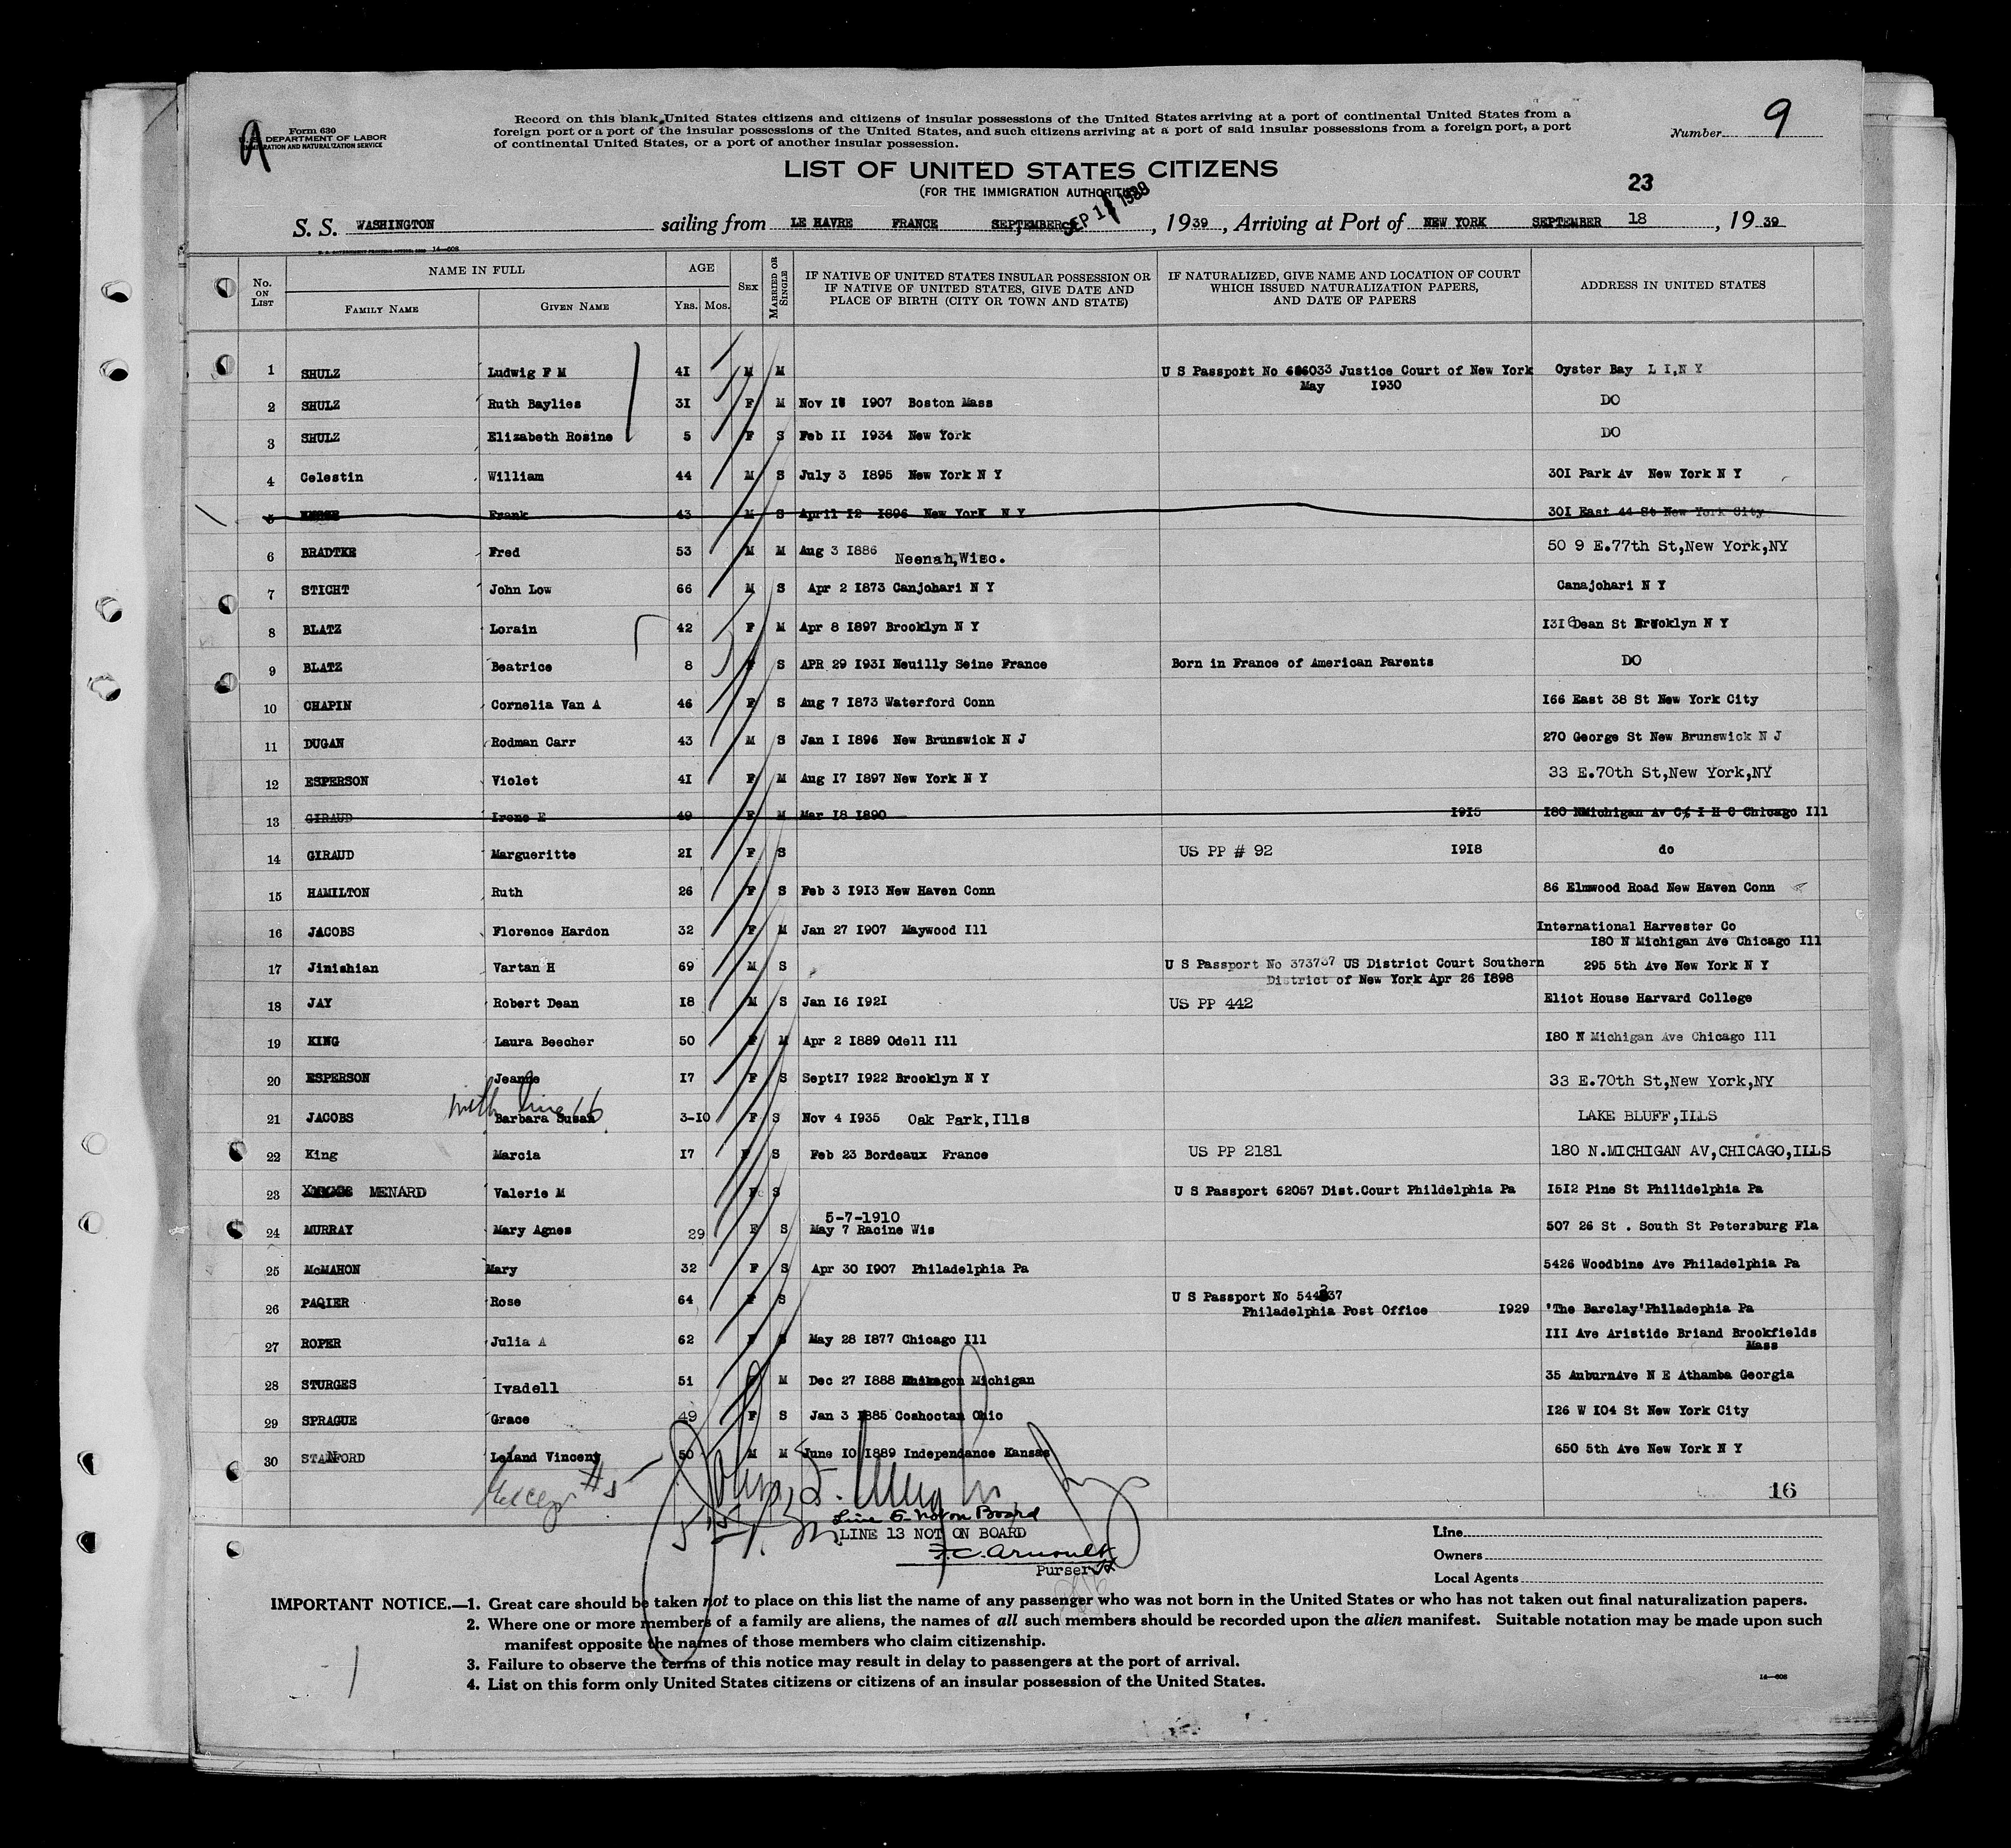 A
Form 630
U. S. DEPARTMENT OF LABOR
IMMIGRATION AND NATURALIZATION SERVICE
Record on this blank United States citizens and citizens of insular possessions of the United States arriving at a port of continental United States from a
foreign port or a port of the insular possessions of the United States, and such citizens arriving at a port of said insular possessions from a foreign port, a port
of continental United States, or a port of another insular possession.
Number 9
LIST OF UNITED STATES CITIZENS
(FOR THE IMMIGRATION AUTHORITIES)
23
S. S. WASHINGTON sailing from LE HAVRE FRANCE SEPTEMBER SEP 1 1939, 1939, Arriving at Port of NEW YORK SEPTEMBER 18, 1939
14—608
No. ON LIST
NAME IN FULL
FAMILY NAME GIVEN NAME
AGE
YRS. MOS.
SEX
MARRIED OR SINGLE
IF NATIVE OF UNITED STATES INSULAR POSSESSION OR
IF NATIVE OF UNITED STATES, GIVE DATE AND
PLACE OF BIRTH (CITY OR TOWN AND STATE)
IF NATURALIZED, GIVE NAME AND LOCATION OF COURT
WHICH ISSUED NATURALIZATION PAPERS,
AND DATE OF PAPERS
ADDRESS IN UNITED STATES
1 SHULZ Ludwig F M 41 M M U S Passport No 6033 Justice Court of New York Oyster Bay L I,N Y
May 1930
2 SHULZ Ruth Baylies 31 F M Nov 1907 Boston Mass DO
3 SHULZ Elizabeth Rosine 5 F S Feb II 1934 New York DO
4 Celestin William 44 M S July 3 1895 New York N Y 301 Park Av New York N Y
5 Frank 43 M S April 12 1896 New York N Y 301 East 44 St New York City
6 BRADTKE Fred 53 M M Aug 3 1886 Neenah,Wisc. 50 9 E.77th St,New York,NY
7 STICHT John Low 66 M S Apr 2 1873 Canjohari N Y Canajohari N Y
8 BLATZ Lorain 42 F M Apr 8 1897 Brooklyn N Y 1316 Dean St Brooklyn N Y
9 BLATZ Beatrice 8 F S APR 29 1931 Neuilly Seine France Born in France of American Parents DO
10 CHAPIN Cornelia Van A 46 F S Aug 7 1873 Waterford Conn 166 East 38 St New York City
11 DUGAN Rodman Carr 43 M S Jan 1 1896 New Brunswick N J 270 George St New Brunswick N J
12 ESPERSON Violet 41 F M Aug 17 1897 New York N Y 33 E.70th St,New York,NY
13 GIRAUD Irene E 49 F M Mar 18 1890 1915 180 NMichigan Av C% I H C Chicago Ill
14 GIRAUD Margueritte 21 F S US PP # 92 1918 do
15 HAMILTON Ruth 26 F S Feb 3 1913 New Haven Conn 86 Elmwood Road New Haven Conn
16 JACOBS Florence Hardon 32 F M Jan 27 1907 Maywood Ill International Harvester Co
180 N Michigan Ave Chicago Ill
17 Jinishian Vartan H 69 M S U S Passport No 373737 US District Court Southern 295 5th Ave New York N Y
District of New York Apr 26 1898
18 JAY Robert Dean 18 M S Jan 16 1921 US PP 442 Eliot House Harvard College
19 KING Laura Beecher 50 F M Apr 2 1889 Odell Ill 180 N Michigan Ave Chicago Ill
20 ESPERSON Jeanne 17 F S Sept17 1922 Brooklyn N Y 33 E.70th St,New York,NY
with line 16
21 JACOBS Barbara Susan 3-10 F S Nov 4 1935 Oak Park,Ills LAKE BLUFF,ILLS
22 King Marcia 17 F S Feb 23 Bordeaux France US PP 2181 180 N.MICHIGAN AV,CHICAGO,ILLS
23 MENARD Valerie M F S U S Passport 62057 Dist.Court Phildelphia Pa 1512 Pine St Philidelphia Pa
5-7-1910
24 MURRAY Mary Agnes 29 F S May 7 Racine Wis 507 26 St . South St Petersburg Fla
25 McMAHON Mary 32 F S Apr 30 1907 Philadelphia Pa 5426 Woodbine Ave Philadelphia Pa
26 PAQIER Rose 64 F S U S Passport No 544237
Philadelphia Post Office 1929 'The Barclay'Philadephia Pa
27 ROPER Julia A 62 F S May 28 1877 Chicago Ill III Ave Aristide Briand Brookfields
Mass
28 STURGES Ivadell 51 M Dec 27 1888 Michigan 35 AuburnAve N E Athamba Georgia
29 SPRAGUE Grace 49 F S Jan 3 1885 Coshoctan Ohio 126 W 104 St New York City
30 STANFORD Leland Vincent 50 M M June 10 1889 Independance Kansas 650 5th Ave New York N Y
Except #5
16
Line 5 Not on Board
LINE 13 NOT ON BOARD
F.C. Arnoult
Purser
Line
Owners
Local Agents
IMPORTANT NOTICE.—1. Great care should be taken not to place on this list the name of any passenger who was not born in the United States or who has not taken out final naturalization papers.
2. Where one or more members of a family are aliens, the names of all such members should be recorded upon the alien manifest. Suitable notation may be made upon such
manifest opposite the names of those members who claim citizenship.
3. Failure to observe the terms of this notice may result in delay to passengers at the port of arrival.
4. List on this form only United States citizens or citizens of an insular possession of the United States.
14—608